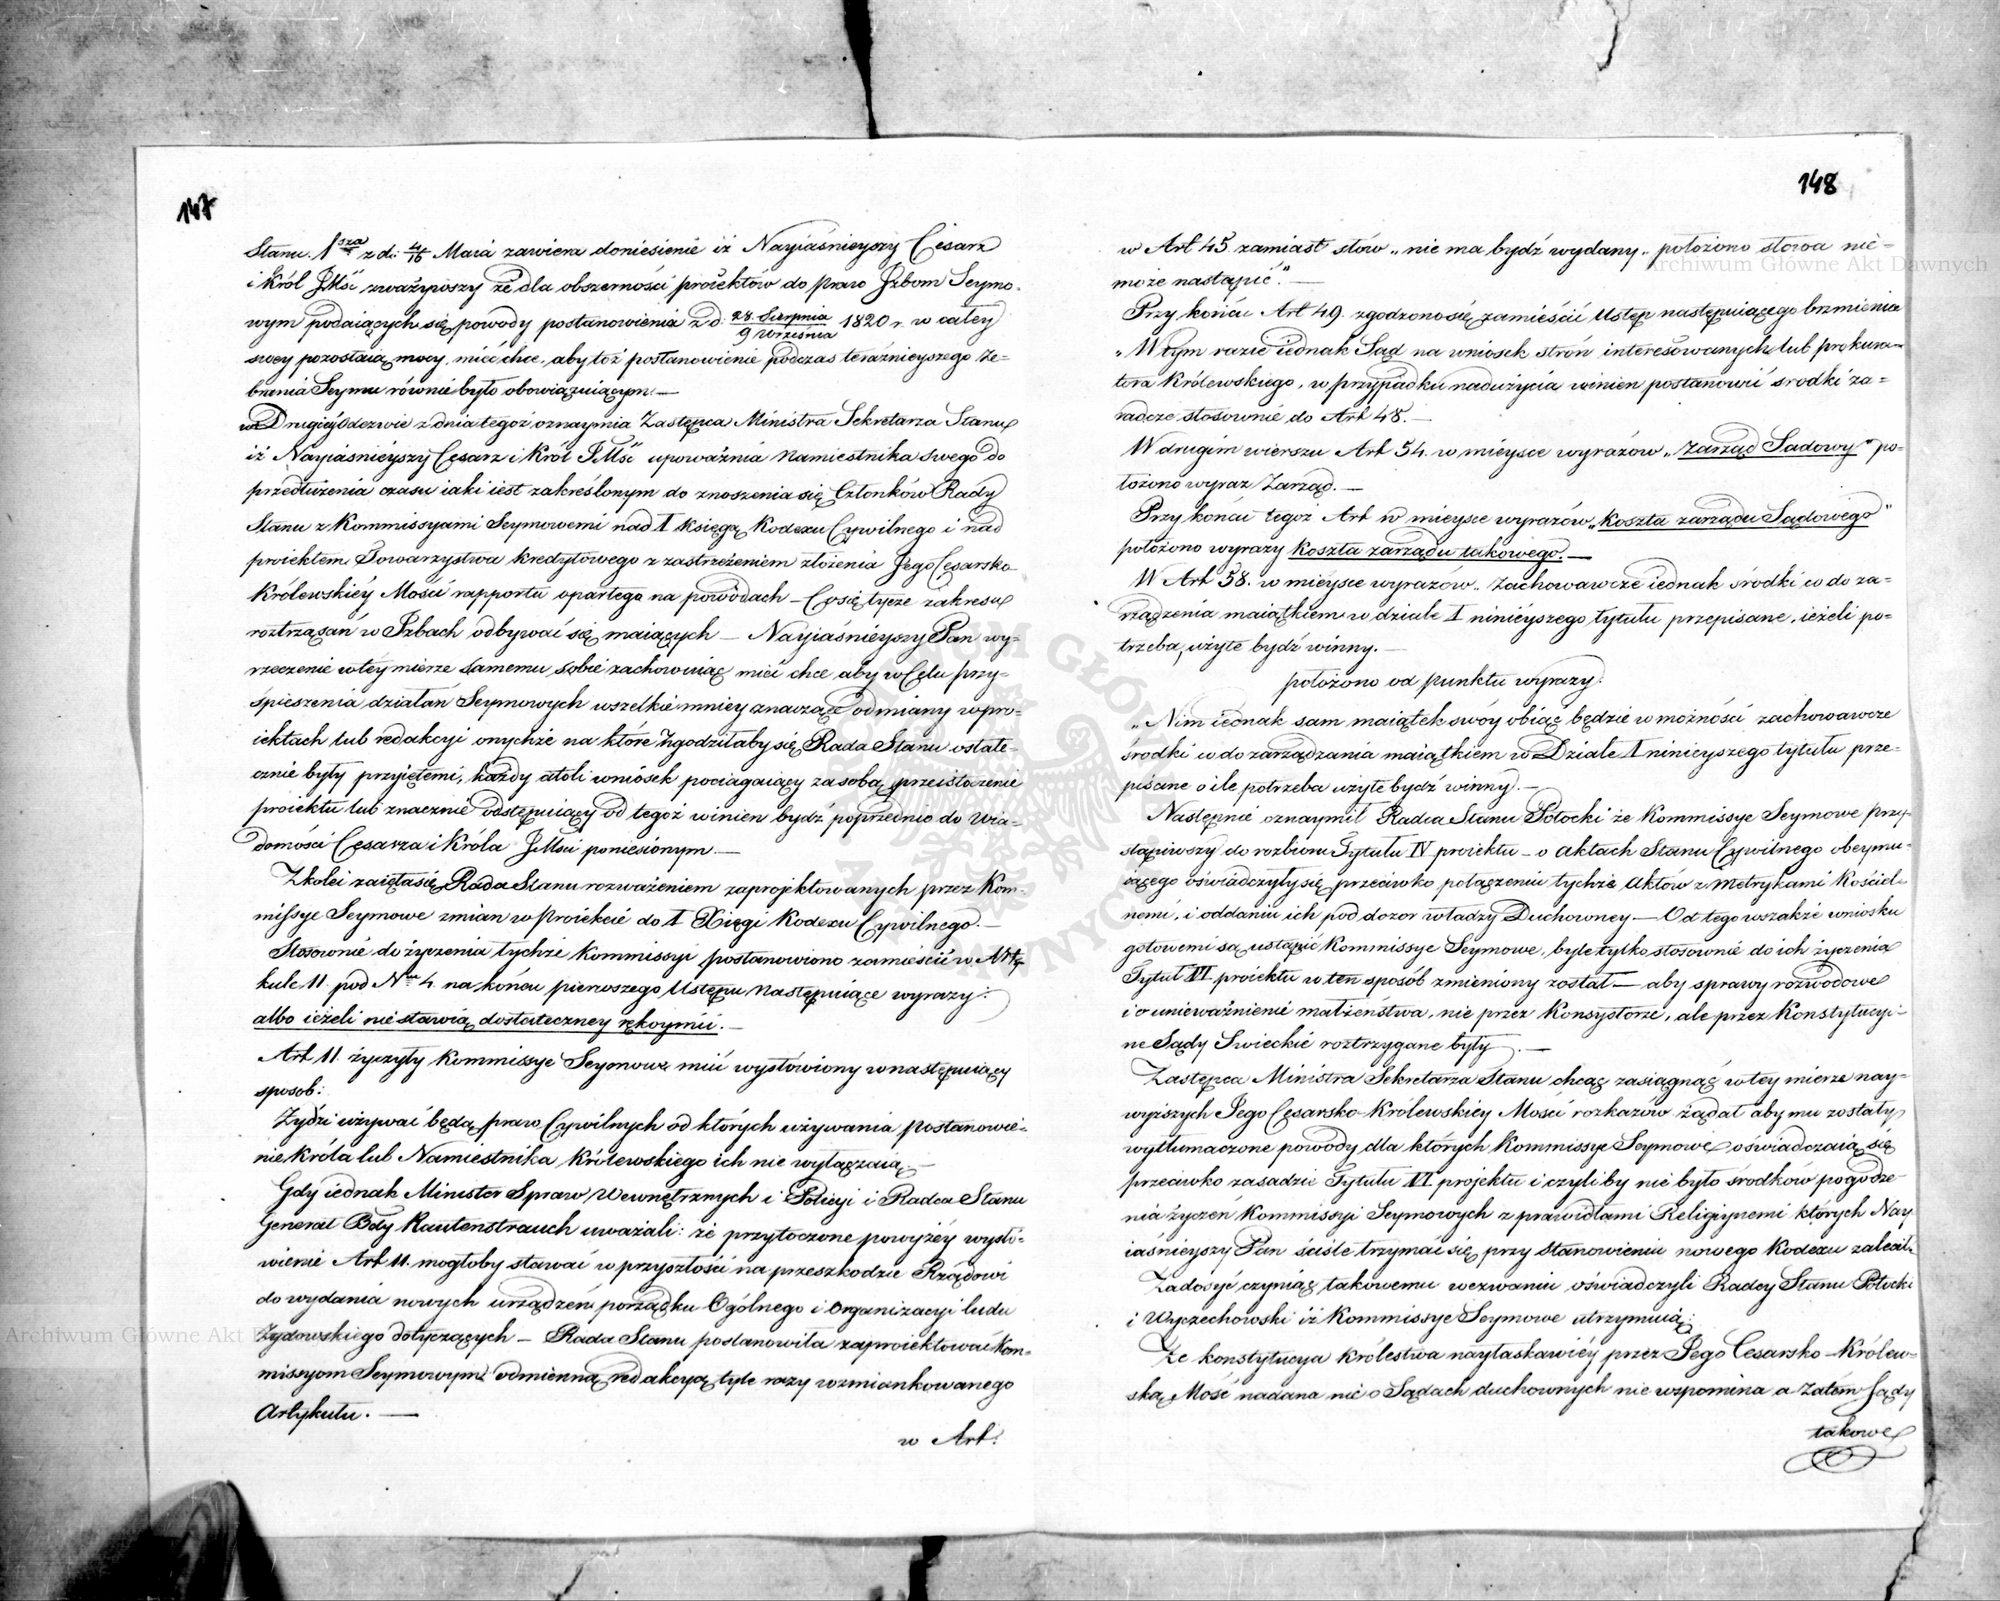 147
Stanu 1sza z d: 4/16 Maia zawiera doniesienie iż Nayiaśnieyszy Cesarz
i Król JMść zważywszy że dla obszerności proiektów do praw Izbom Seymo-
wym podaiących się, powody postanowienia z d: 28. Sierpnia / 9 Września 1820 r. w całey
swey pozostaią mocy, mieć chce, aby toż postanowienie podczas teraźnieyszego ze-
brania Seymu równie było obowiązuiącym. —
w Drugiéy Odezwie z dnia tegoż oznaymia Zastępca Ministra Sekretarza Stanu
iż Nayiaśnieyszy Cesarz i Król JMść upoważnia Namiestnika swego do
przedłużenia czasu iaki iest zakreślonym do znoszenia się Członków Rady
Stanu z Kommissyami Seymowemi nad I Księgą Kodexu Cywilnego i nad
proiektem Towarzystwa kredytowego z zastrzeżeniem złożenia Jego Cesarsko
Królewskiéy Mości rapportu opartego na powodach — Co się tycze zakresu
roztrząsań w Izbach odbywać się maiących — Nayiaśnieyszy Pan wy-
rzeczenie w tey mierze samemu sobie zachowuiąc mieć chce aby w Celu przy-
śpieszenia działań Seymowych wszelkie mniey znaczące odmiany w pro-
iektach lub redakcyi onychże na które zgodziłaby się Rada Stanu ostate-
cznie były przyiętemi, każdy atoli wniosek pociągaiący za sobą przeistoczenie
proiektu lub znacznie odstępuiący od tegoż winien bydź poprzednio do wia-
domości Cesarza i Króla JMści poniesionym. —
Z kolei zaięła się Rada Stanu rozważeniem zaprojektowanych przez Kom-
missye Seymowe zmian w Proiekcie do I Xięgi Kodexu Cywilnego. —
Stosownie do życzenia tychże Kommissyi postanowiono zamieścić w Arty-
kule 11. pod Nrm 4. na końcu pierwszego Ustępu następuiące wyrazy:
albo ieżeli nie stawią dostateczney rękoymii. —
Art 11. życzyły Kommissye Seymowe mieć wysłowiony w następuiący
sposob:
Żydzi używać będą praw Cywilnych od których używania postanowie-
nie Króla lub Namiestnika Królewskiego ich nie wyłączaią —
Gdy iednak Minister Spraw Wewnętrznych i Policyi i Radca Stanu
Generał Bdy Rautenstrauch uważali: że przytoczone powyżéy wysło-
wienie Art 11. mogłoby stawać w przyszłości na przeszkodzie Rządowi
do wydania nowych urządzeń porządku Ogólnego i organizacyi ludu
Żydowskiego dotyczących — Rada Stanu postanowiła zaproiektować Kom-
missyom Seymowym odmienną redakcyą tyle razy wzmiankowanego
Artykułu. —
w Art.
148
w Art 45. zamiast słów „nie ma bydź wydany„ położono słowa nie-
może nastąpić." —
Przy końcu Art 49. zgodzono się zamieścić Ustęp następuiącego brzmienia
„W tym razie iednak Sąd na wniosek stron interesowanych lub prokura-
tora Królewskiego, w przypadku nadużycia winien postanowić srodki za-
radcze stosownie do Art 48. —
W drugim wierszu Art 54. w mieysce wyrazów „Zarząd Sądowy" po-
łożono wyraz Zarząd. —
Przy końcu tegoż Art w mieysce wyrazów „Koszta zarządu Sądowego"
położono wyrazy Koszta zarządu takowego. —
W Art 58. w mieysce wyrazów „Zachowawcze iednak środki co do za-
rządzenia maiątkiem w dziale I ninieyszego tytułu przepisane, ieżeli po-
trzeba, użyte bydź winny. —
położono od punktu wyrazy:
„Nim iednak sam maiątek swóy obiąć będzie w możności zachowawcze
środki co do zarządzania maiątkiem w Dziale I ninieyszego tytułu prze-
pisane o ile potrzeba użyte bydź winny. —
Następnie oznaymił Radca Stanu Potocki że Kommissye Seymowe przy-
stąpiwszy do rozbioru Tytułu IV proiektu — o Aktach Stanu Cywilnego obeymu-
iącego oświadczyły się przeciwko połączeniu tychże Aktów z Metrykami Kościel-
nemi, i oddaniu ich pod dozor władzy Duchowney — Od tego wszakże wniosku
gotowemi są ustąpić Kommissye Seymowe, byle tylko stosownie do ich życzenia
Tytuł VI proiektu w ten sposób zmieniony został — aby sprawy rozwodowe
i o unieważnienie małżeństwa, nie przez Konsystorze, ale przez Konstytucyi-
ne Sądy Swieckie roztrzygane były. —
Zastępca Ministra Sekretarza Stanu chcąc zasiągnąć w tey mierze nay-
wyższych Jego Cesarsko Królewskiey Mości rozkazów żądał aby mu zostały
wytłumaczone powody dla których Kommissye Seymowe oświadczaią się
przeciwko zasadzie Tytułu VI projektu i czyliby nie było środków pogodze-
nia życzeń Kommissyi Seymowych z prawidłami Religiynemi których Nay
iaśnieyszy Pan ściśle trzymać się przy Stanowieniu nowego Kodexu zalecił.
Zadosyć czyniąc takowemu wezwaniu oświadczyli Radcy Stanu Potocki
i Wyczechowski iż Kommissye Seymowe utrzymuią:
Że Konstytucya Królestwa nayłaskawiéy przez Jego Cesarsko-Królew-
ską Mość nadana nic o Sądach duchownych nie wspomina a zatem Sądy
takowe